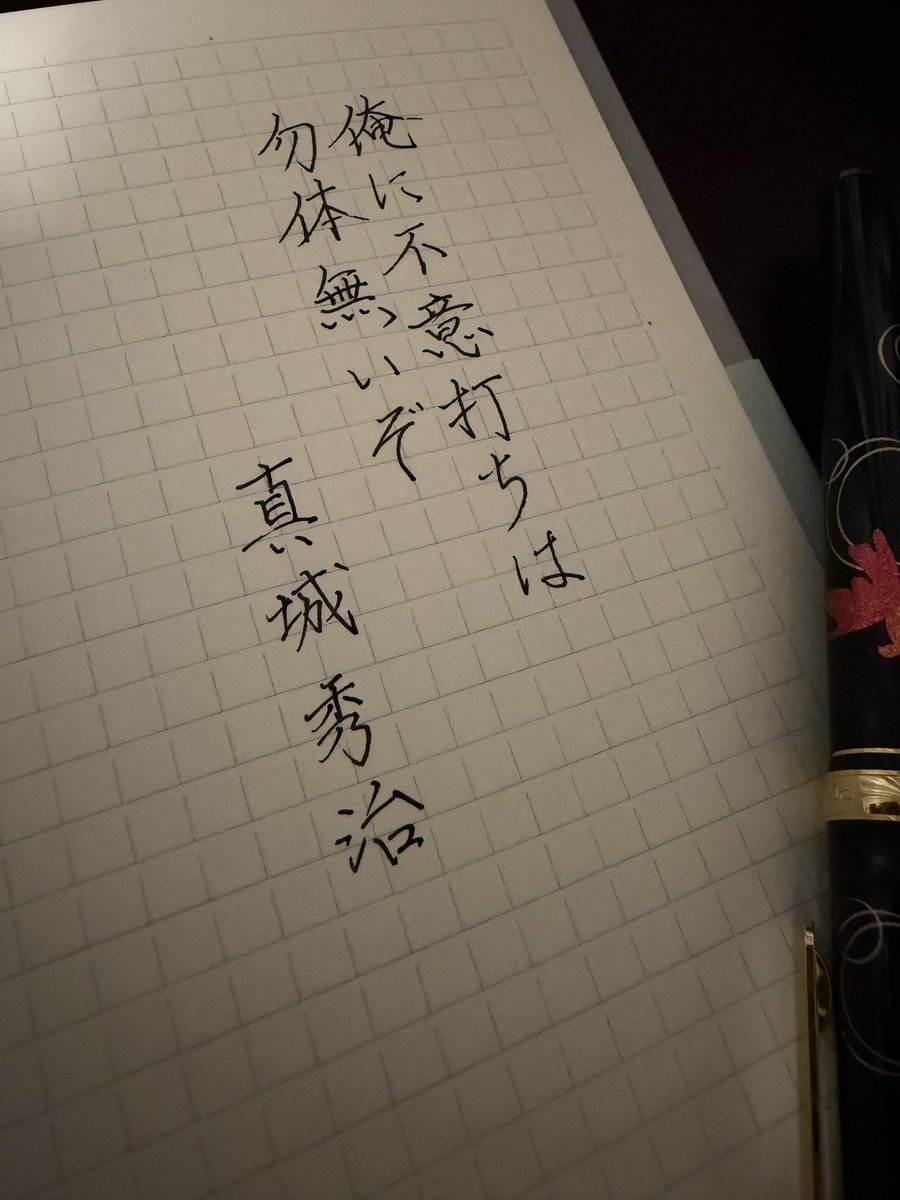 俺に不意打ちは
勿体無いぞ
真城秀治